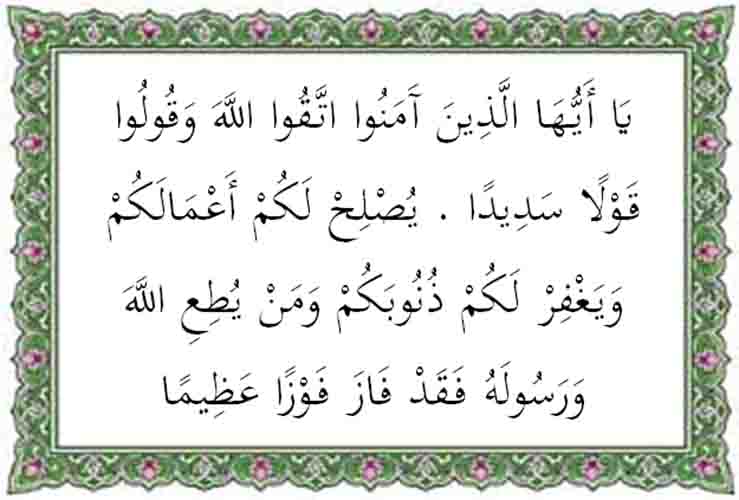 يَا أَيُّهَا الَّذِينَ آَمَنُوا اتَّقُوا اللَّهَ وَقُولُوا
قَوْلًا سَدِيدًا . يُصْلِحْ لَكُمْ أَعْمَالَكُمْ
وَيَغْفِرْ لَكُمْ ذُنُوبَكُمْ وَمَنْ يُطِعِ اللَّهَ
وَرَسُولَهُ فَقَدْ فَازَ فَوْزًا عَظِيمًا